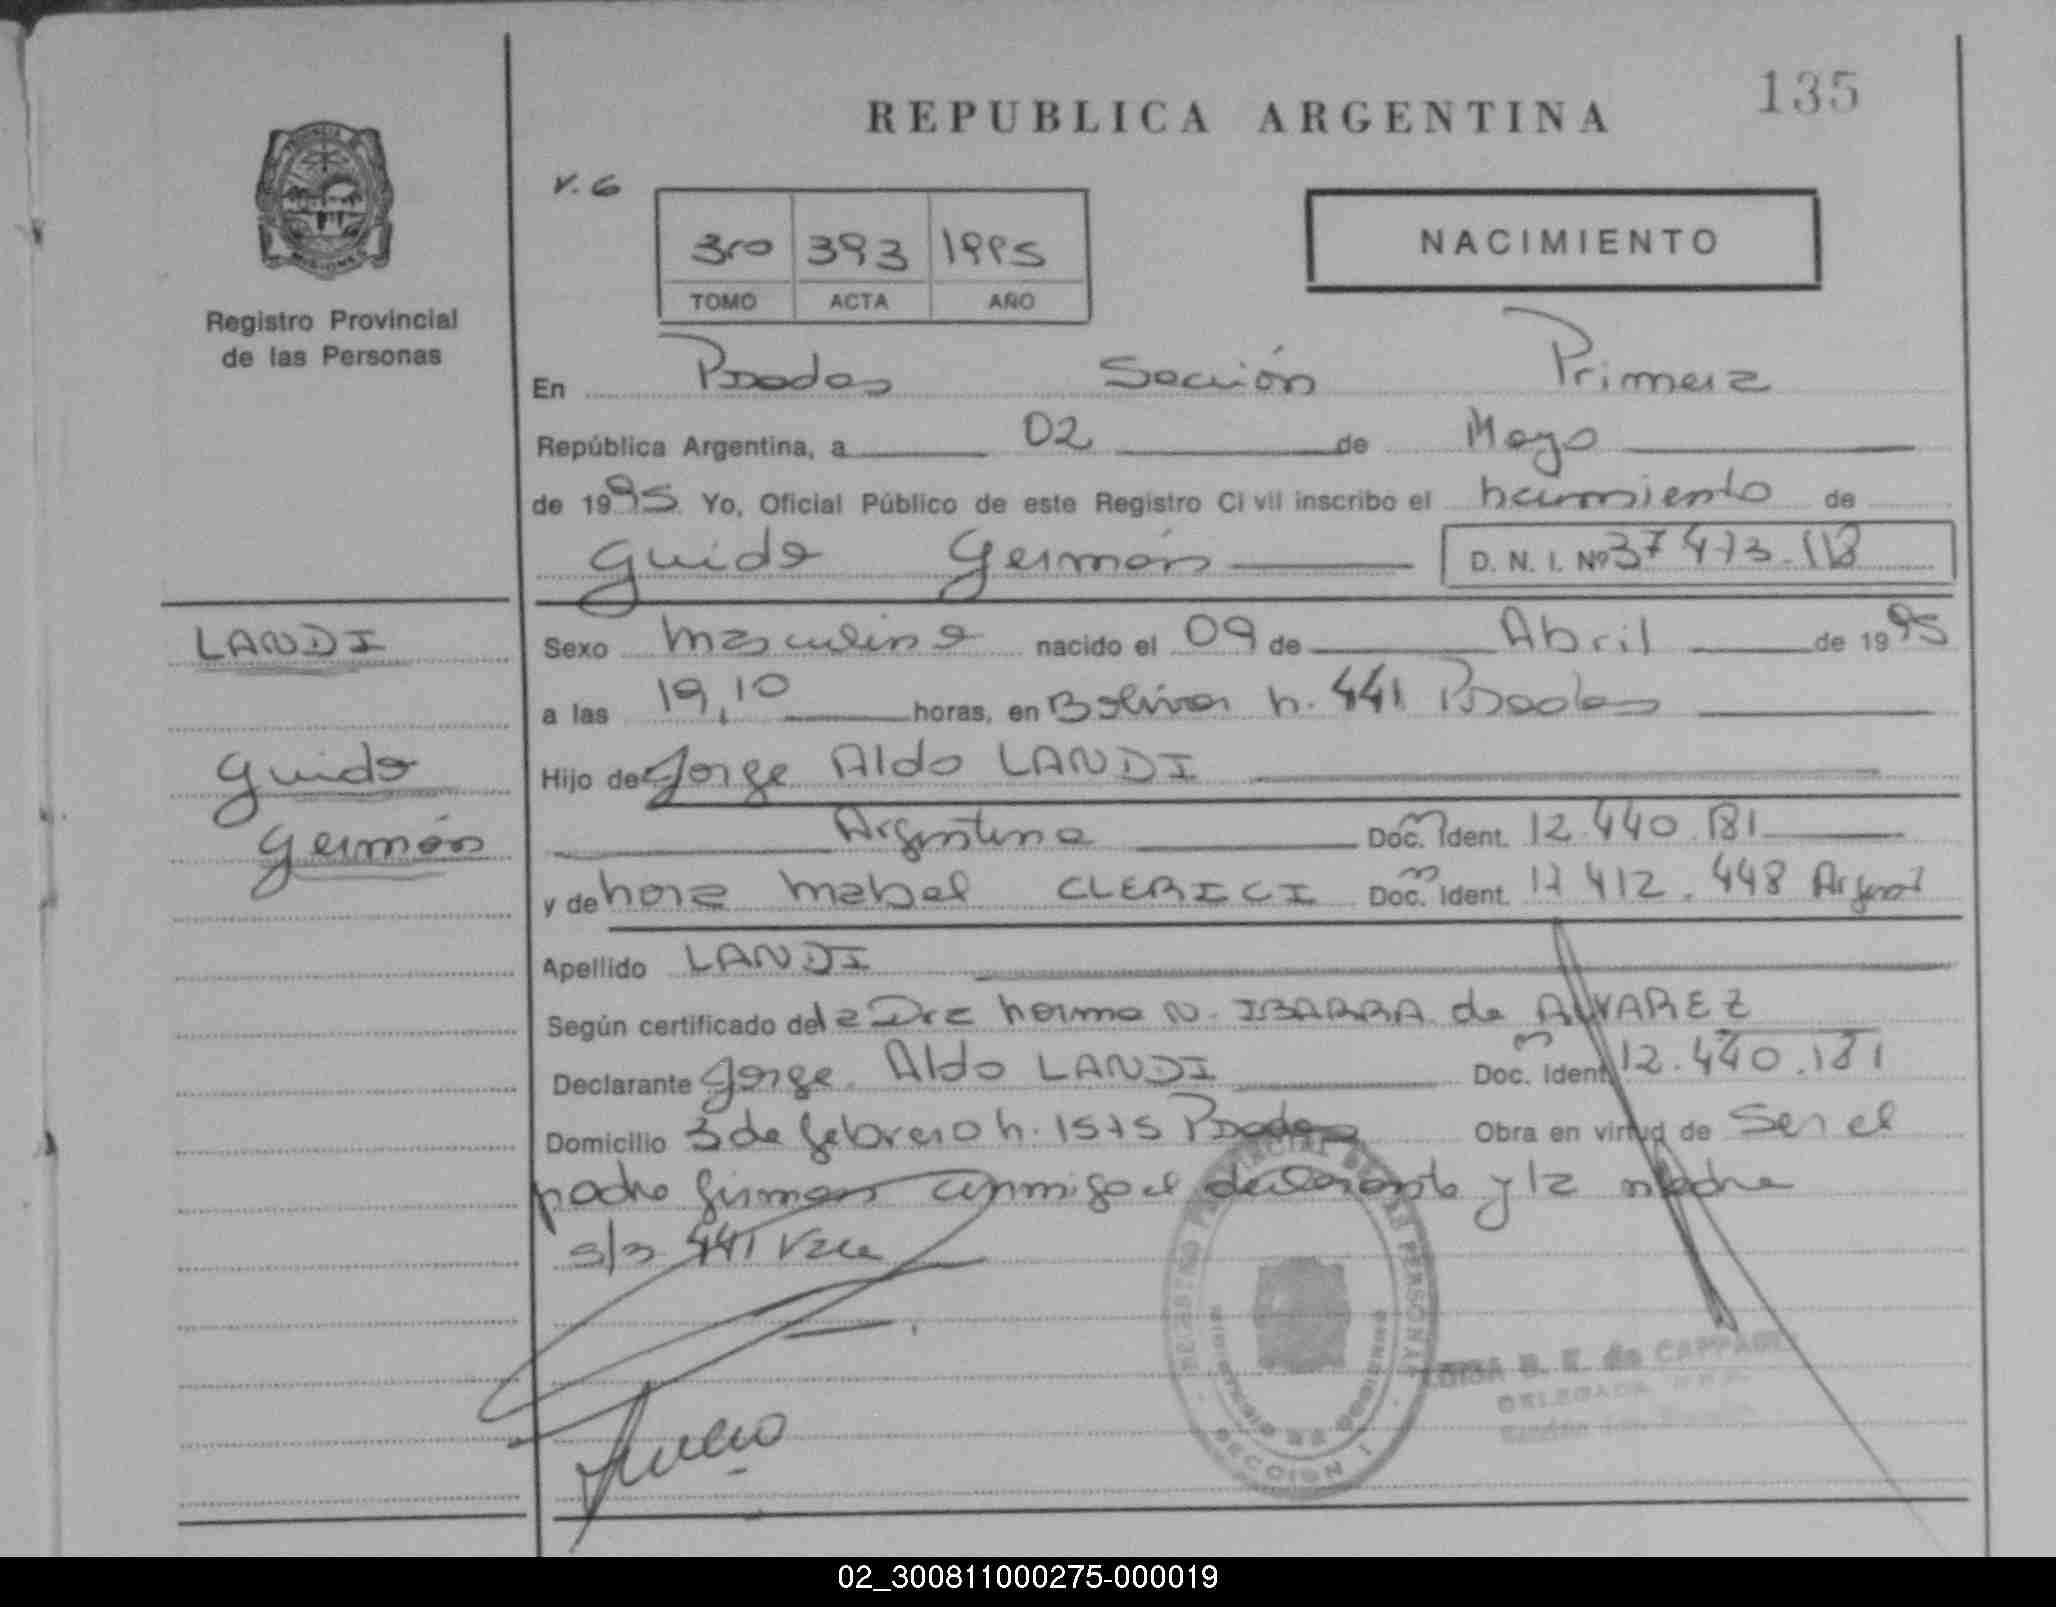 135
REPUBLICA ARGENTINA
PROVINCIA DE MISIONES
Registro Provincial
de las Personas
V. G
3ro 393 1995
TOMO ACTA AÑO
NACIMIENTO
En Posadas Sección Primera
República Argentina, a 02 de Mayo
de 1995 Yo, Oficial Público de este Registro Civil inscribo el nacimiento de
Guido Germán D. N. I. Nº 37 473.118
LANDI
Guido
Germán
Sexo Masculino nacido el 09 de Abril de 1995
a las 19,10 horas, en Bolivar N. 441 Posadas
Hijo de Jorge Aldo LANDI
Argentino Doc. Ident. 12.440.181
y de Nora Mabel CLERICI Doc. Ident. 17 412.448 Argent
Apellido LANDI
Según certificado de la Dra Norma N. IBARRA de ALVAREZ
Declarante Jorge Aldo LANDI Doc. Ident. 12.440.181
Domicilio 3 de Febrero N. 1575 Posadas Obra en virtud de Ser el
padre firman conmigo el declarante y la madre
s/r 441 Vale
REGISTRO PROVINCIAL DE LAS PERSONAS
MINISTERIO DE GOBIERNO
SECCION 1
B. E. de
DELEGADA
02_300811000275-000019